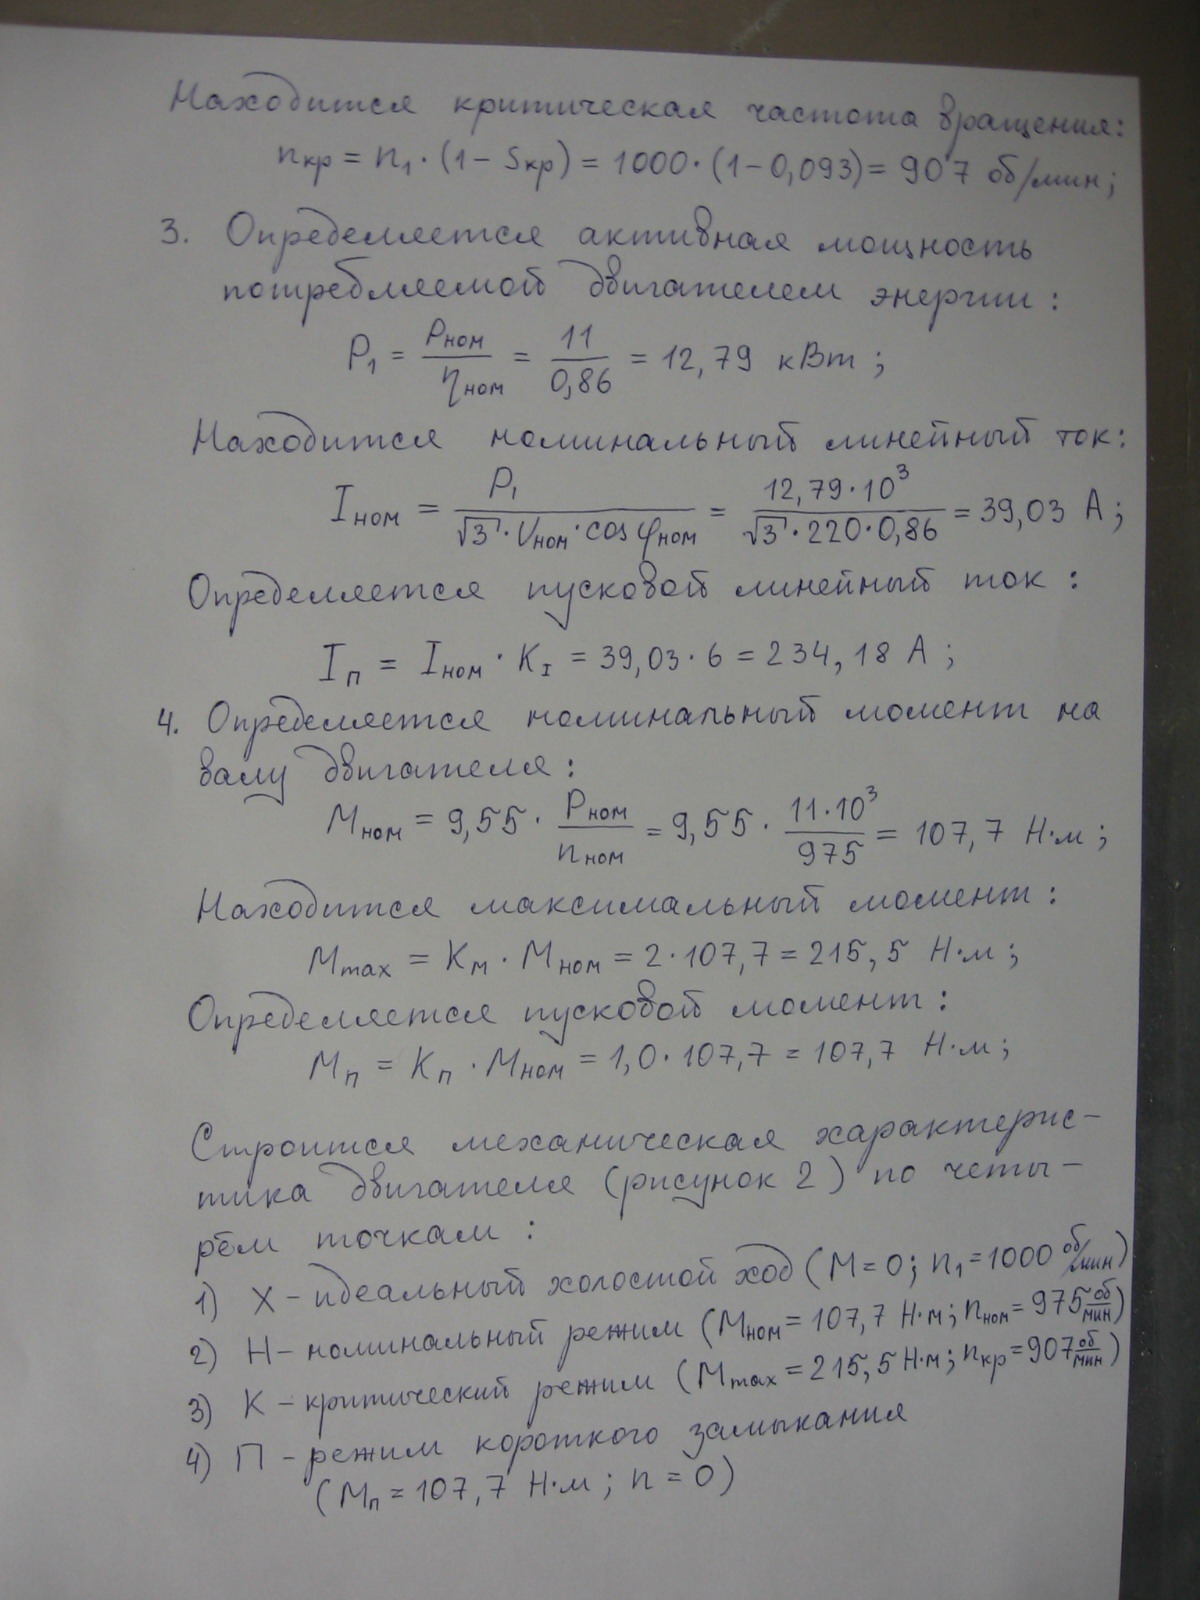 Находится критическая частота вращения:
nкр = n₁ · (1 - Sкр) = 1000 · (1 - 0,093) = 907 об/мин;
3. Определяется активная мощность
потребляемой двигателем энергии:
P₁ = Pном / ηном = 11 / 0,86 = 12,79 кВт;
Находится номинальный линейный ток:
Iном = P₁ / √3 · Uном · cos φном = 12,79 · 10³ / √3 · 220 · 0,86 = 39,03 А;
Определяется пусковой линейный ток:
Iп = Iном · KI = 39,03 · 6 = 234,18 А;
4. Определяется номинальный момент на
валу двигателя:
Mном = 9,55 · Pном / nном = 9,55 · 11 · 10³ / 975 = 107,7 Н·м;
Находится максимальный момент:
Mmax = Kм · Mном = 2 · 107,7 = 215,5 Н·м;
Определяется пусковой момент:
Mп = Kп · Mном = 1,0 · 107,7 = 107,7 Н·м;
Строится механическая характерис-
тика двигателя (рисунок 2) по четы-
рём точкам:
1) X - идеальный холостой ход (M = 0; n₁ = 1000 об/мин)
2) Н - номинальный режим (Mном = 107,7 Н·м; nном = 975 об/мин)
3) К - критический режим (Mmax = 215,5 Н·м; nкр = 907 об/мин)
4) П - режим короткого замыкания
(Mп = 107,7 Н·м; n = 0)